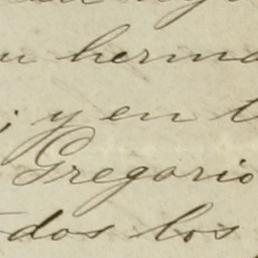 u herma
; y en t
Gregorio
dos los